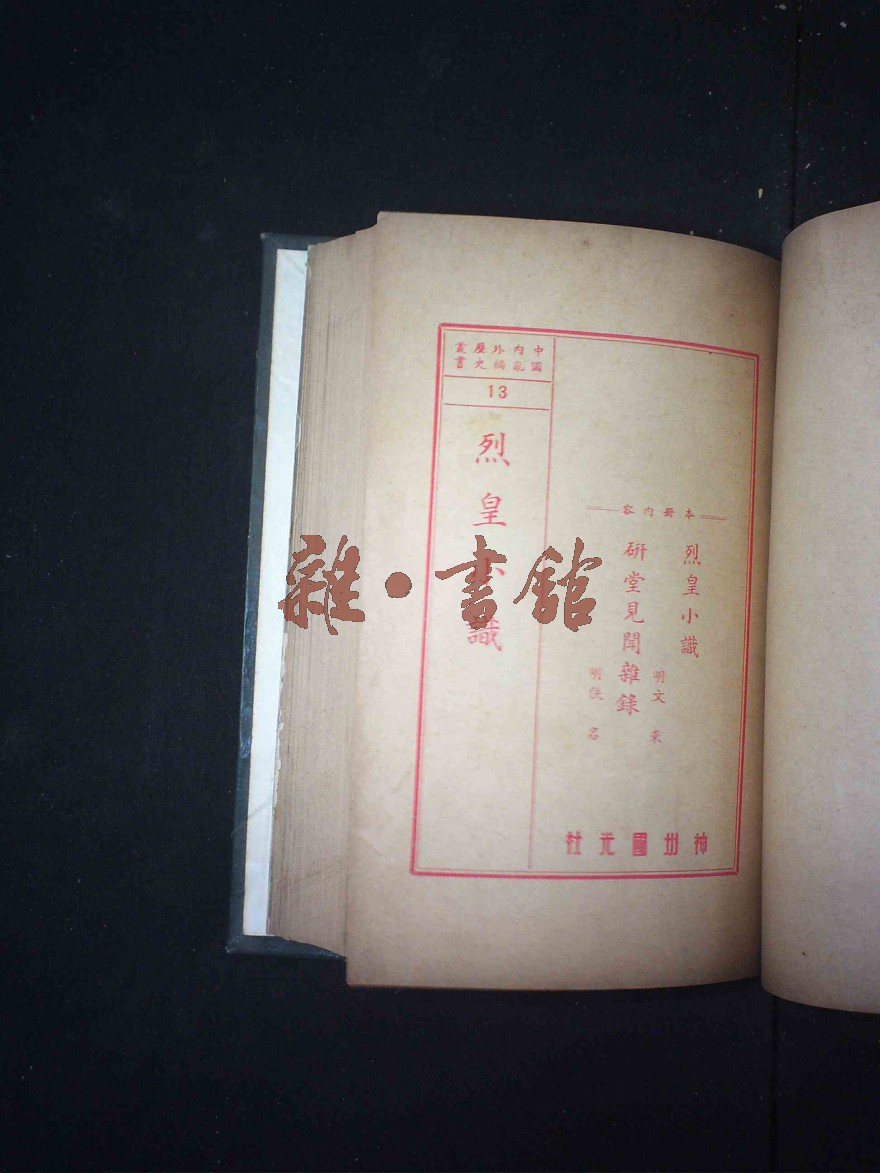 中國內亂外禍歷史叢書
13
烈皇小識
本册內容
烈皇小識
明文秉
研堂見聞雜錄
明佚名
神州國光社
雜·書館